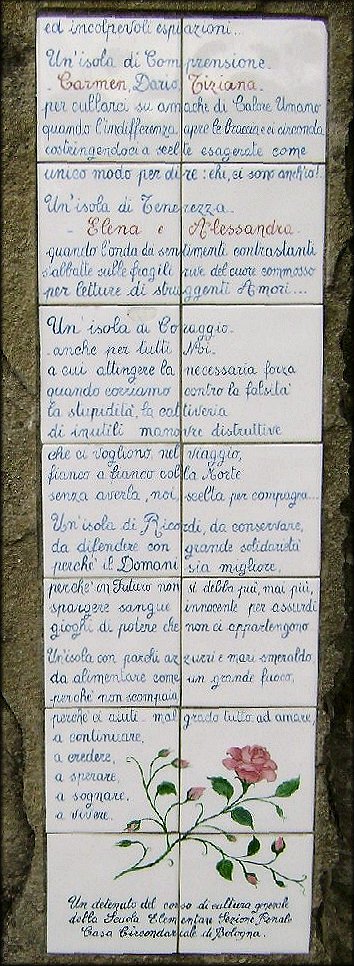 ed incolpevoli espiazioni...
Un'isola di Comprensione
- Carmen, Dario, Tiziana -
per cullarci su amache di Calore Umano
quando l'indifferenza apre le braccia e ci circonda
costringendoci a scelte esagerate come
unico modo per dire: ehi, ci sono anch'io!
Un'isola di Tenerezza
- Elena e Alessandra -
quando l'onda da sentimenti contrastanti
s'abbatte sulle fragili rive del cuore commosso
per letture di struggenti Amori...
Un'isola di Coraggio -
- anche per tutti Noi -
a cui attingere la necessaria forza
quando cozziamo contro la falsità
la stupidità, la cattiveria
di inutili manovre distruttive
che ci vogliono, nel viaggio,
fianco a fianco colla Morte
senza averla, noi, scelta per compagna...
Un'isola di Ricordi, da conservare,
da difendere con grande solidarietà
perché il Domani sia migliore,
perché in Futuro non si debba più, mai più,
spargere sangue innocente per assurdi
giochi di potere che non ci appartengono
Un'isola con parchi azzurri e mari smeraldo
da alimentare come un grande fuoco,
perché non scompaia
perché ci aiuti - malgrado tutto, ad amare,
a continuare,
a credere,
a sperare,
a sognare,
a vivere.
Un detenuto del corso di cultura generale
della Scuola Elementare Sezione Penale
Casa Circondariale di Bologna.